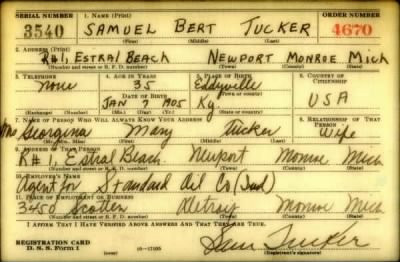 SERIAL NUMBER 1. NAME (Print) ORDER NUMBER
3540 SAMUEL BERT TUCKER 4670
(First) (Middle) (Last)
2. ADDRESS (Print)
R#1, ESTRAL BEACH NEWPORT MONROE MICH
(Number and street or R. F. D. number) (Town) (County) (State)
3. TELEPHONE 4. AGE IN YEARS 5. PLACE OF BIRTH 6. COUNTRY OF CITIZENSHIP
None 35 Eddyville
DATE OF BIRTH (Town or county)
JAN 7 1905 Ky. USA
(Exchange) (Number) (Mo.) (Day) (Yr.) (State or country)
7. NAME OF PERSON WHO WILL ALWAYS KNOW YOUR ADDRESS 8. RELATIONSHIP OF THAT PERSON
Mrs Georgina Mary Tucker Wife
(Mr., Mrs., Miss) (First) (Middle) (Last)
9. ADDRESS OF THAT PERSON
R#1, Estral Beach. Newport Monroe Mich
(Number and street or R. F. D. number) (Town) (County) (State)
10. EMPLOYER'S NAME
Agent for Standard Oil Co (Ind)
11. PLACE OF EMPLOYMENT OR BUSINESS
3450 Scotten Detroit Monroe Mich
(Number and street or R. F. D. number) (Town) (County) (State)
I AFFIRM THAT I HAVE VERIFIED ABOVE ANSWERS AND THAT THEY ARE TRUE.
REGISTRATION CARD
D. S. S. Form 1 16-17105 Sam Tucker
(Registrant's signature)